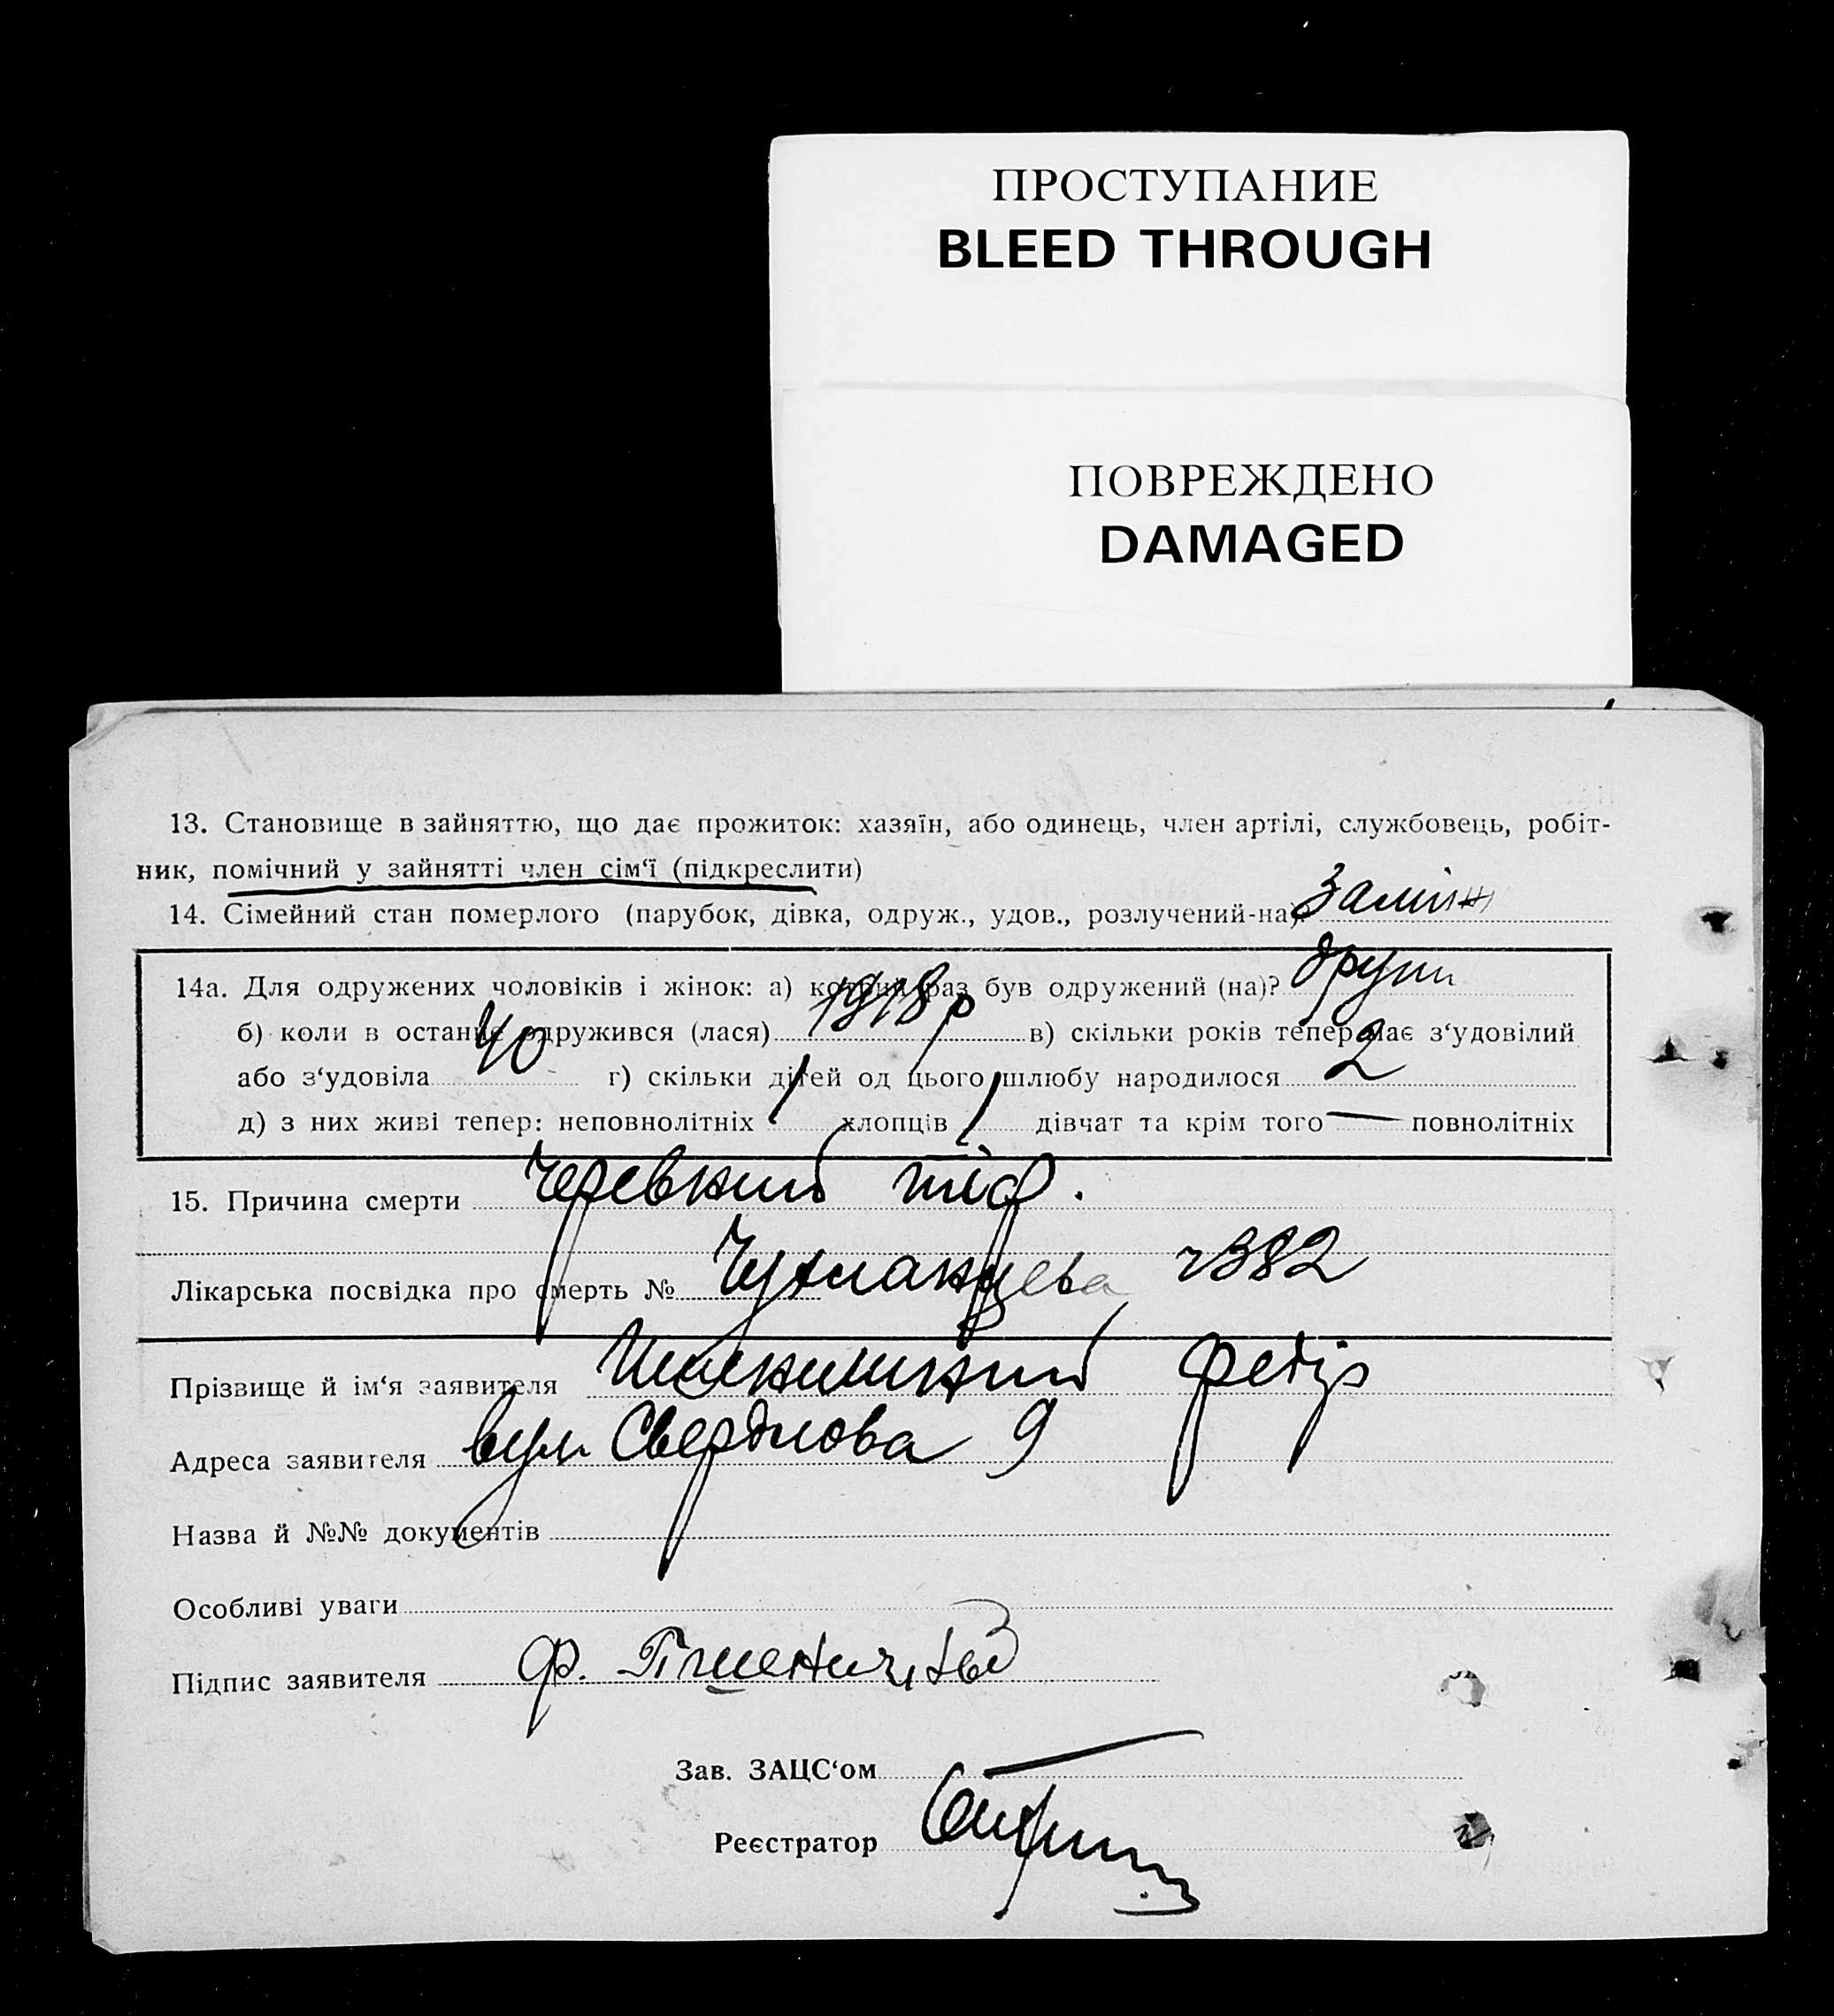 ПРОСТУПАНИЕ
BLEED THROUGH
ПОВРЕЖДЕНО
DAMAGED
13. Становище в зайняттю, що дає прожиток: хазяїн, або одинець, член артілі, службовець, робіт-
ник, помічний у зайнятті член сім‘ї (підкреслити)
14. Сімейний стан померлого (парубок, дівка, одруж., удов., розлучений-на)
14а. Для одружених чоловіків і жінок: а) котрий раз був одружений (на)?
б) коли в останнє одружився (лася) 1918 р в) скільки років тепер має з‘удовілий
або з‘удовіла 40 г) скільки дітей од цього шлюбу народилося 2
д) з них живі тепер: неповнолітніх 1 хлопців 1 дівчат та крім того — повнолітніх
15. Причина смерти Черевний тіф.
Лікарська посвідка про смерть № ч382
Прізвище й ім‘я заявителя
Адреса заявителя вул Свердлова 9
Назва й №№ документів
Особливі уваги
Підпис заявителя Ф.
Зав. ЗАЦС‘ом
Реєстратор